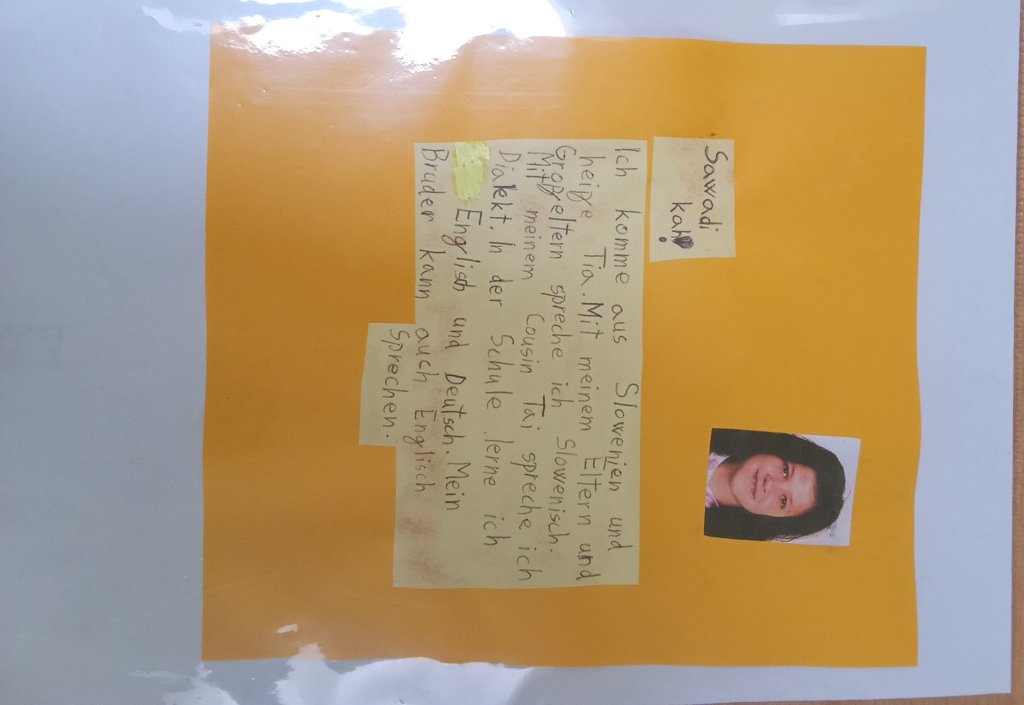 Sawadi
kah!
Ich komme aus Slowenien und
heiße Tia. Mit meinem Eltern und
Großeltern spreche ich Slowenisch.
Mit meinem Cousin Tai spreche ich
Dialekt. In der Schule lerne ich
Englisch und Deutsch. Mein
Bruder kann auch Englisch
sprechen.